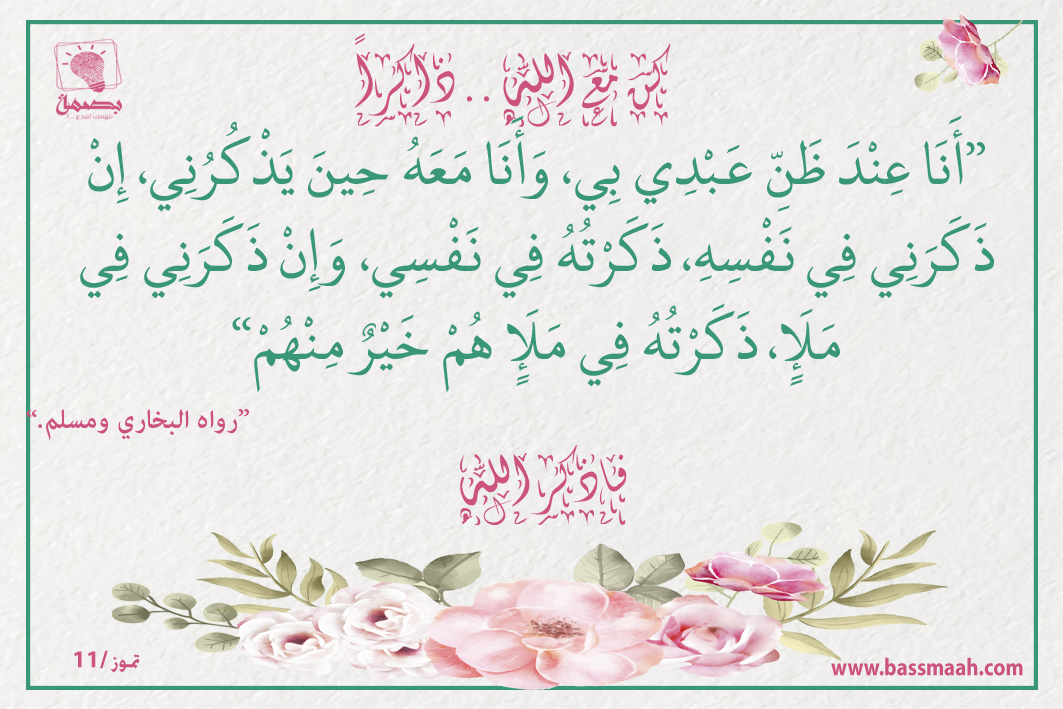 كن مع الله .. ذاكراً
بصمة
”أَنَا عِنْدَ ظَنِّ عَبْدِي بِي، وَأَنَا مَعَهُ حِينَ يَذْكُرُنِي، إِنْ
ذَكَرَنِي فِي نَفْسِهِ، ذَكَرْتُهُ فِي نَفْسِي، وَإِنْ ذَكَرَنِي فِي
مَلَإٍ، ذَكَرْتُهُ فِي مَلَإٍ هُمْ خَيْرٌ مِنْهُمْ“
”رواه البخاري ومسلم.“
فاذكر الله
تموز/11
www.bassmaah.com